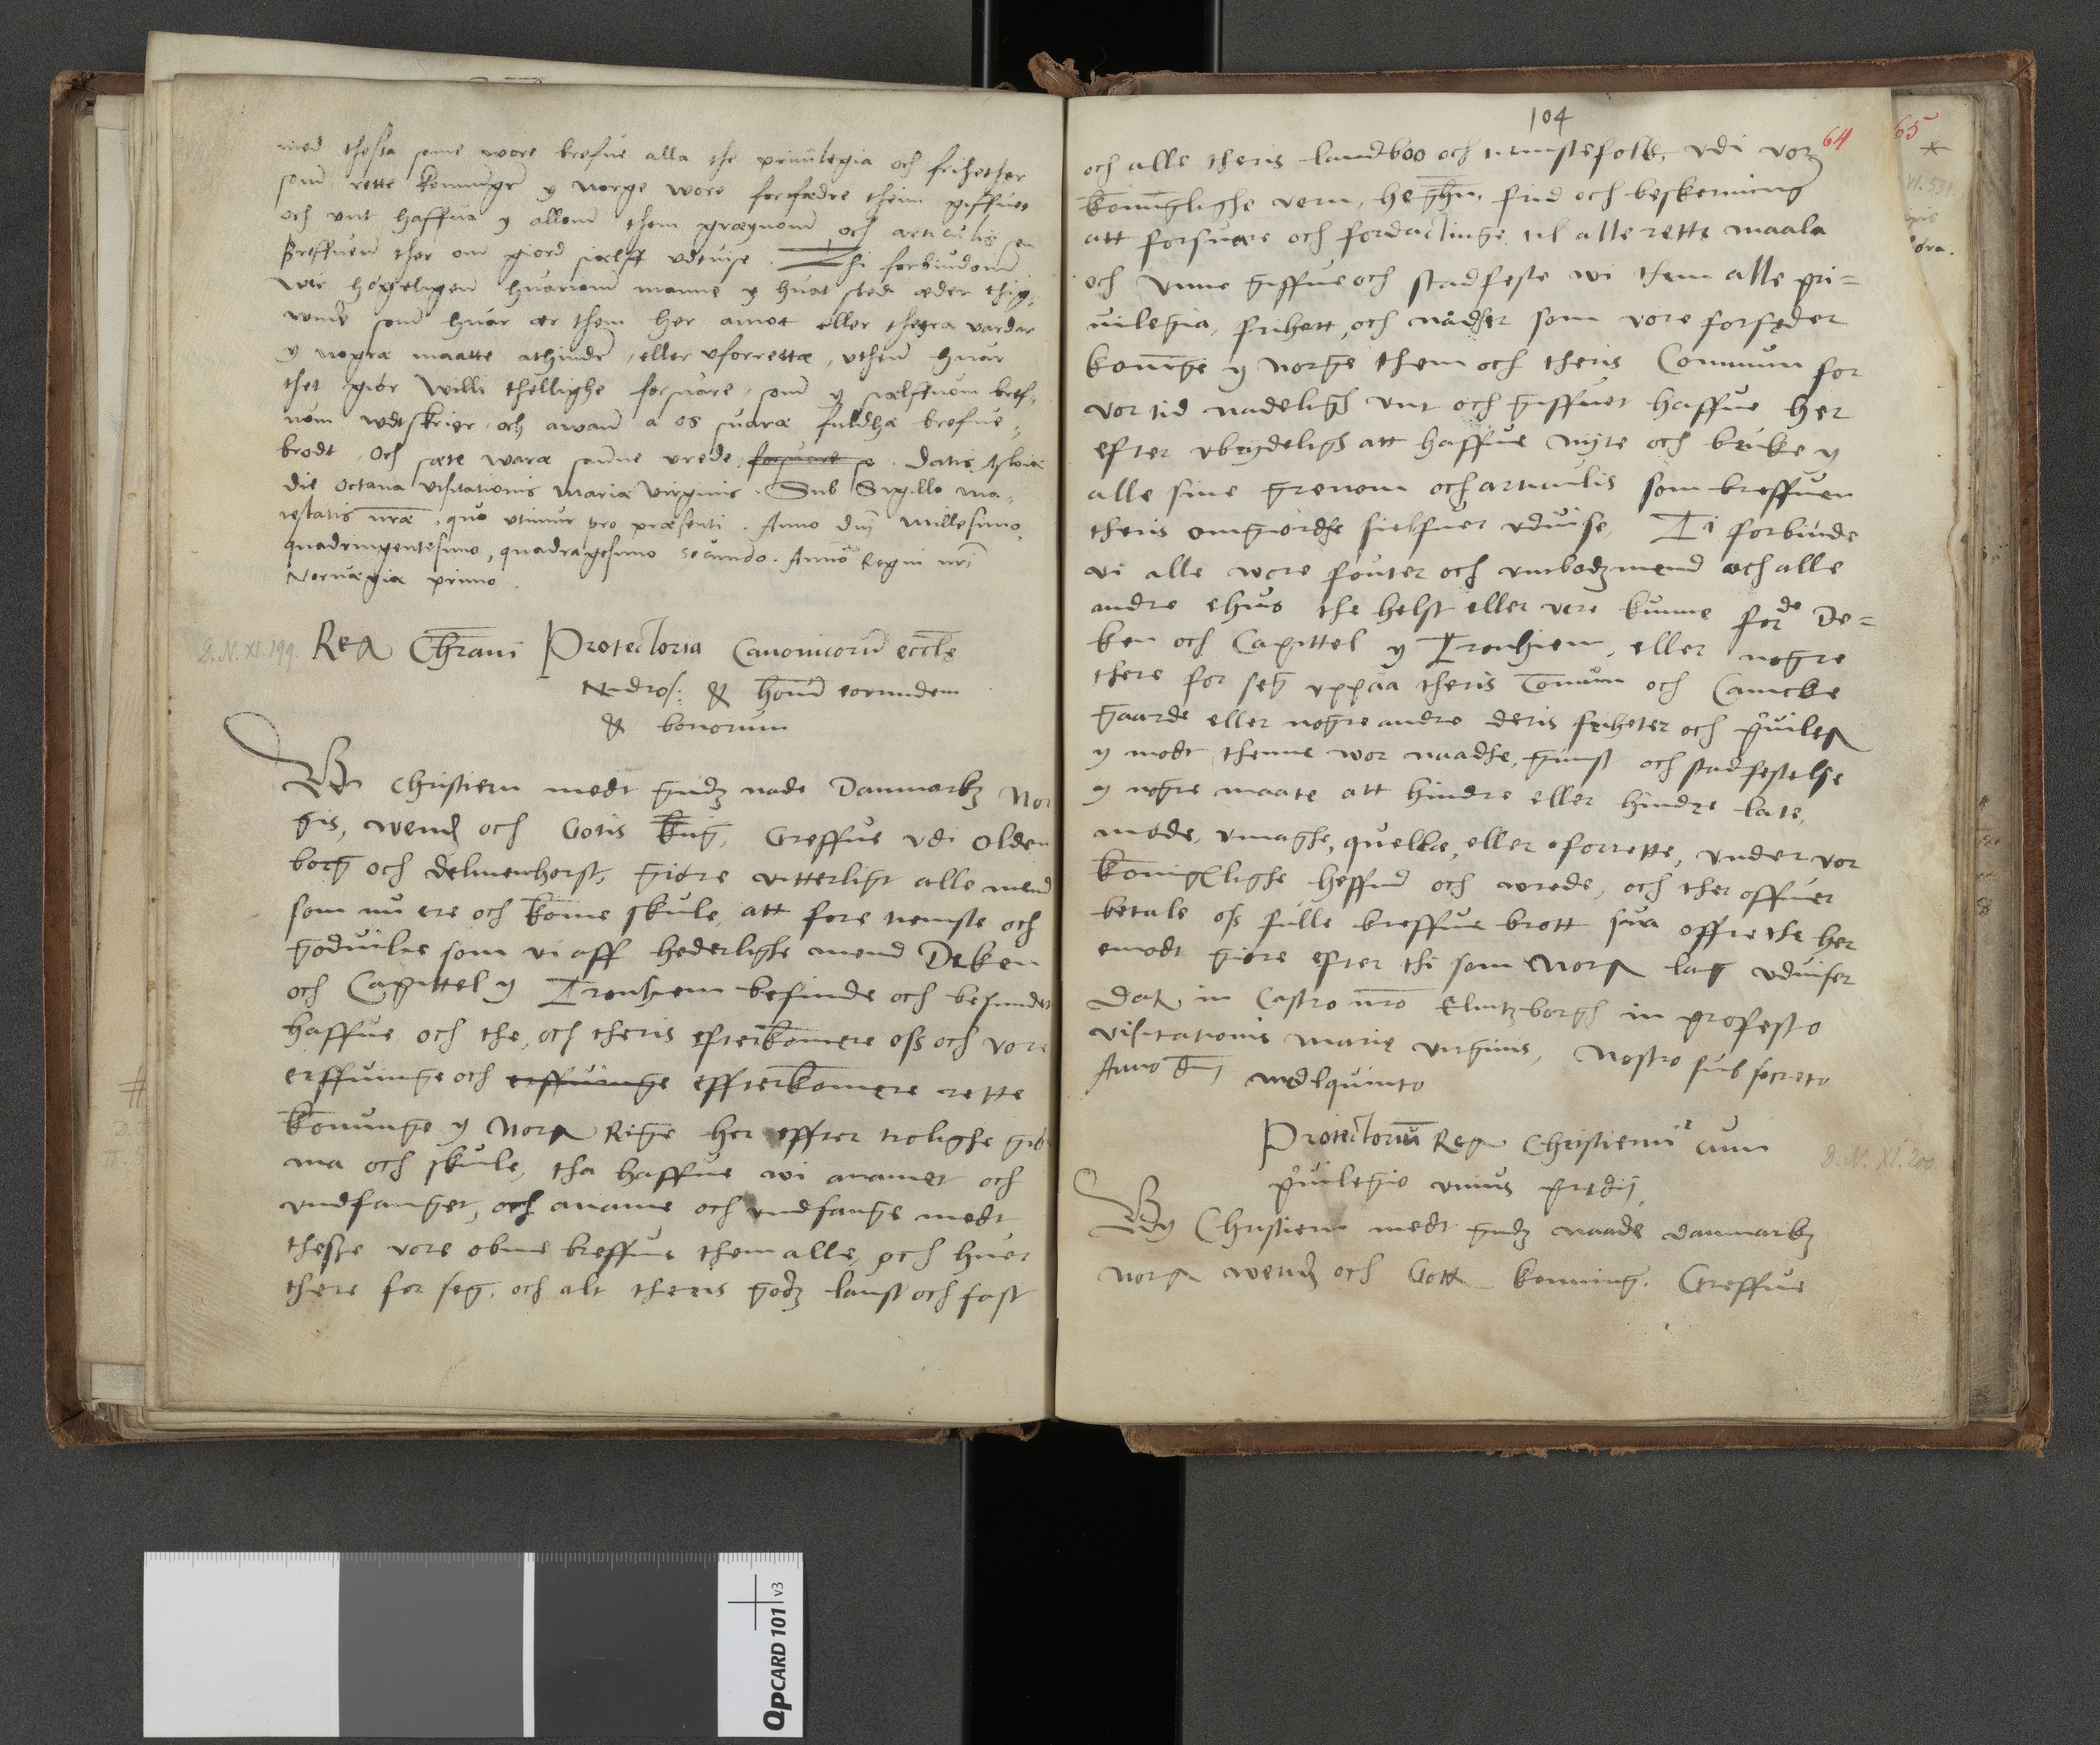 med thessa some wore brefue alla the priuilegia och frihether
som rette konungr y norge wore forfædre theim giffuet
och unt haffua y allom them grægnom och articulis som
Breffuen ther om giord sielff vdtuise. Thi forbiudom
wir høgeligen huariom manne y huat sted æder thig-
som huar ær them her amot eller thegra vardar
y nogra maatte athindr, eller vforrettæ, vthen huar
thet giør willi thellighe forsuare, som y sielffuom bref-
nom vdtskrier och awan a os suara fuldha brefue-
brodt, Och sæte wara sanne vrede forsuare. Datis Asloiæ
die octaua visitationis Mariæ virginis. Sub Sigillo ma-
iestatis nræ, quo vtimur pro præsenti. Anno dnj Millesimo,
quadringentesimo, quadragesimo secundo. Anno Regni nri
Noruægiæ primo.
D. N. XI. 199.
Reg Chrani Protectoria Canonicoru eccle
Nidros: & homi eorundem
& bonorum
Wi Christiern medt gudz nade Danmarkz Nor
gis, wend och Gotis kng, Greffue vdi Olden
borg och delmenhorst, giøre vitterligt alle mend
som nu ere och kome skule, att fore tienste och
goduilie som vi aff hederlighe mend Deken
och Capittel y Tronhiem befinde och befundet
haffue och the, och theris efterkomere oss och vore
erffuinge och erffuinge effterkomere rette
konunge y Norg Rige her effter trolighe giø
ma och skule, tha haffue wi anamet och
undfanget, och aname och undfange medt
thesse vore obne breffue them alle, och huer
there for seg, och alt theris godz laust och fast
104
64
och alle theris landboo och tienstefolk, vdi vor
koninglighe vern, heghn, frid och beskerming
att forsuare och fordactinge til alle rette maala
och unne giffue och stadfeste wi them alle pri=
uilegia, frihett, och nådher som vore forfeder
koninge y Norge them och theris Commun for
vor tid nadeligh vnt och giffuet haffue her
efter vbrydeligh att haffue nyte och bruke y
alle sine grenom och articulis som breffuen
theris omgiordhe sielffuer vduise, Ti forbiude
vi alle wore fouter och vmbodzmend och alle
andre ehuo the helst eller vere kunne forde De=
ken och Capittel y Tronhiem, eller nogre
there for seg vppaa theris Comun och Canicke
gaarde eller nogre andre deris friheter och priuileg
y modt thenne wor naadhe, gunst och stadfestelse
y nogre maate att hindre eller hindre late,
møde, vmaghe, quellæ, eller oforrette, vnder vor
koniglighe heffnd och wrede, och ther offuer
betale oss fulle breffue brott saa offte the her
emodt giøre efter thi som Norg lag vduiser
Dat in Castro nro Elsutzborgh in profesto
visitationis marie virginis, Nostro sub secreto
Anno dnj mdlquinto
Protectoriu Reg Christierni cum
priuilegio vnius predij
D. N. XI. 200.
Wy Christiern medt gudz naade danmarkz
norg wend och Gott konning. Greffue
65
QpCARD 101 v3